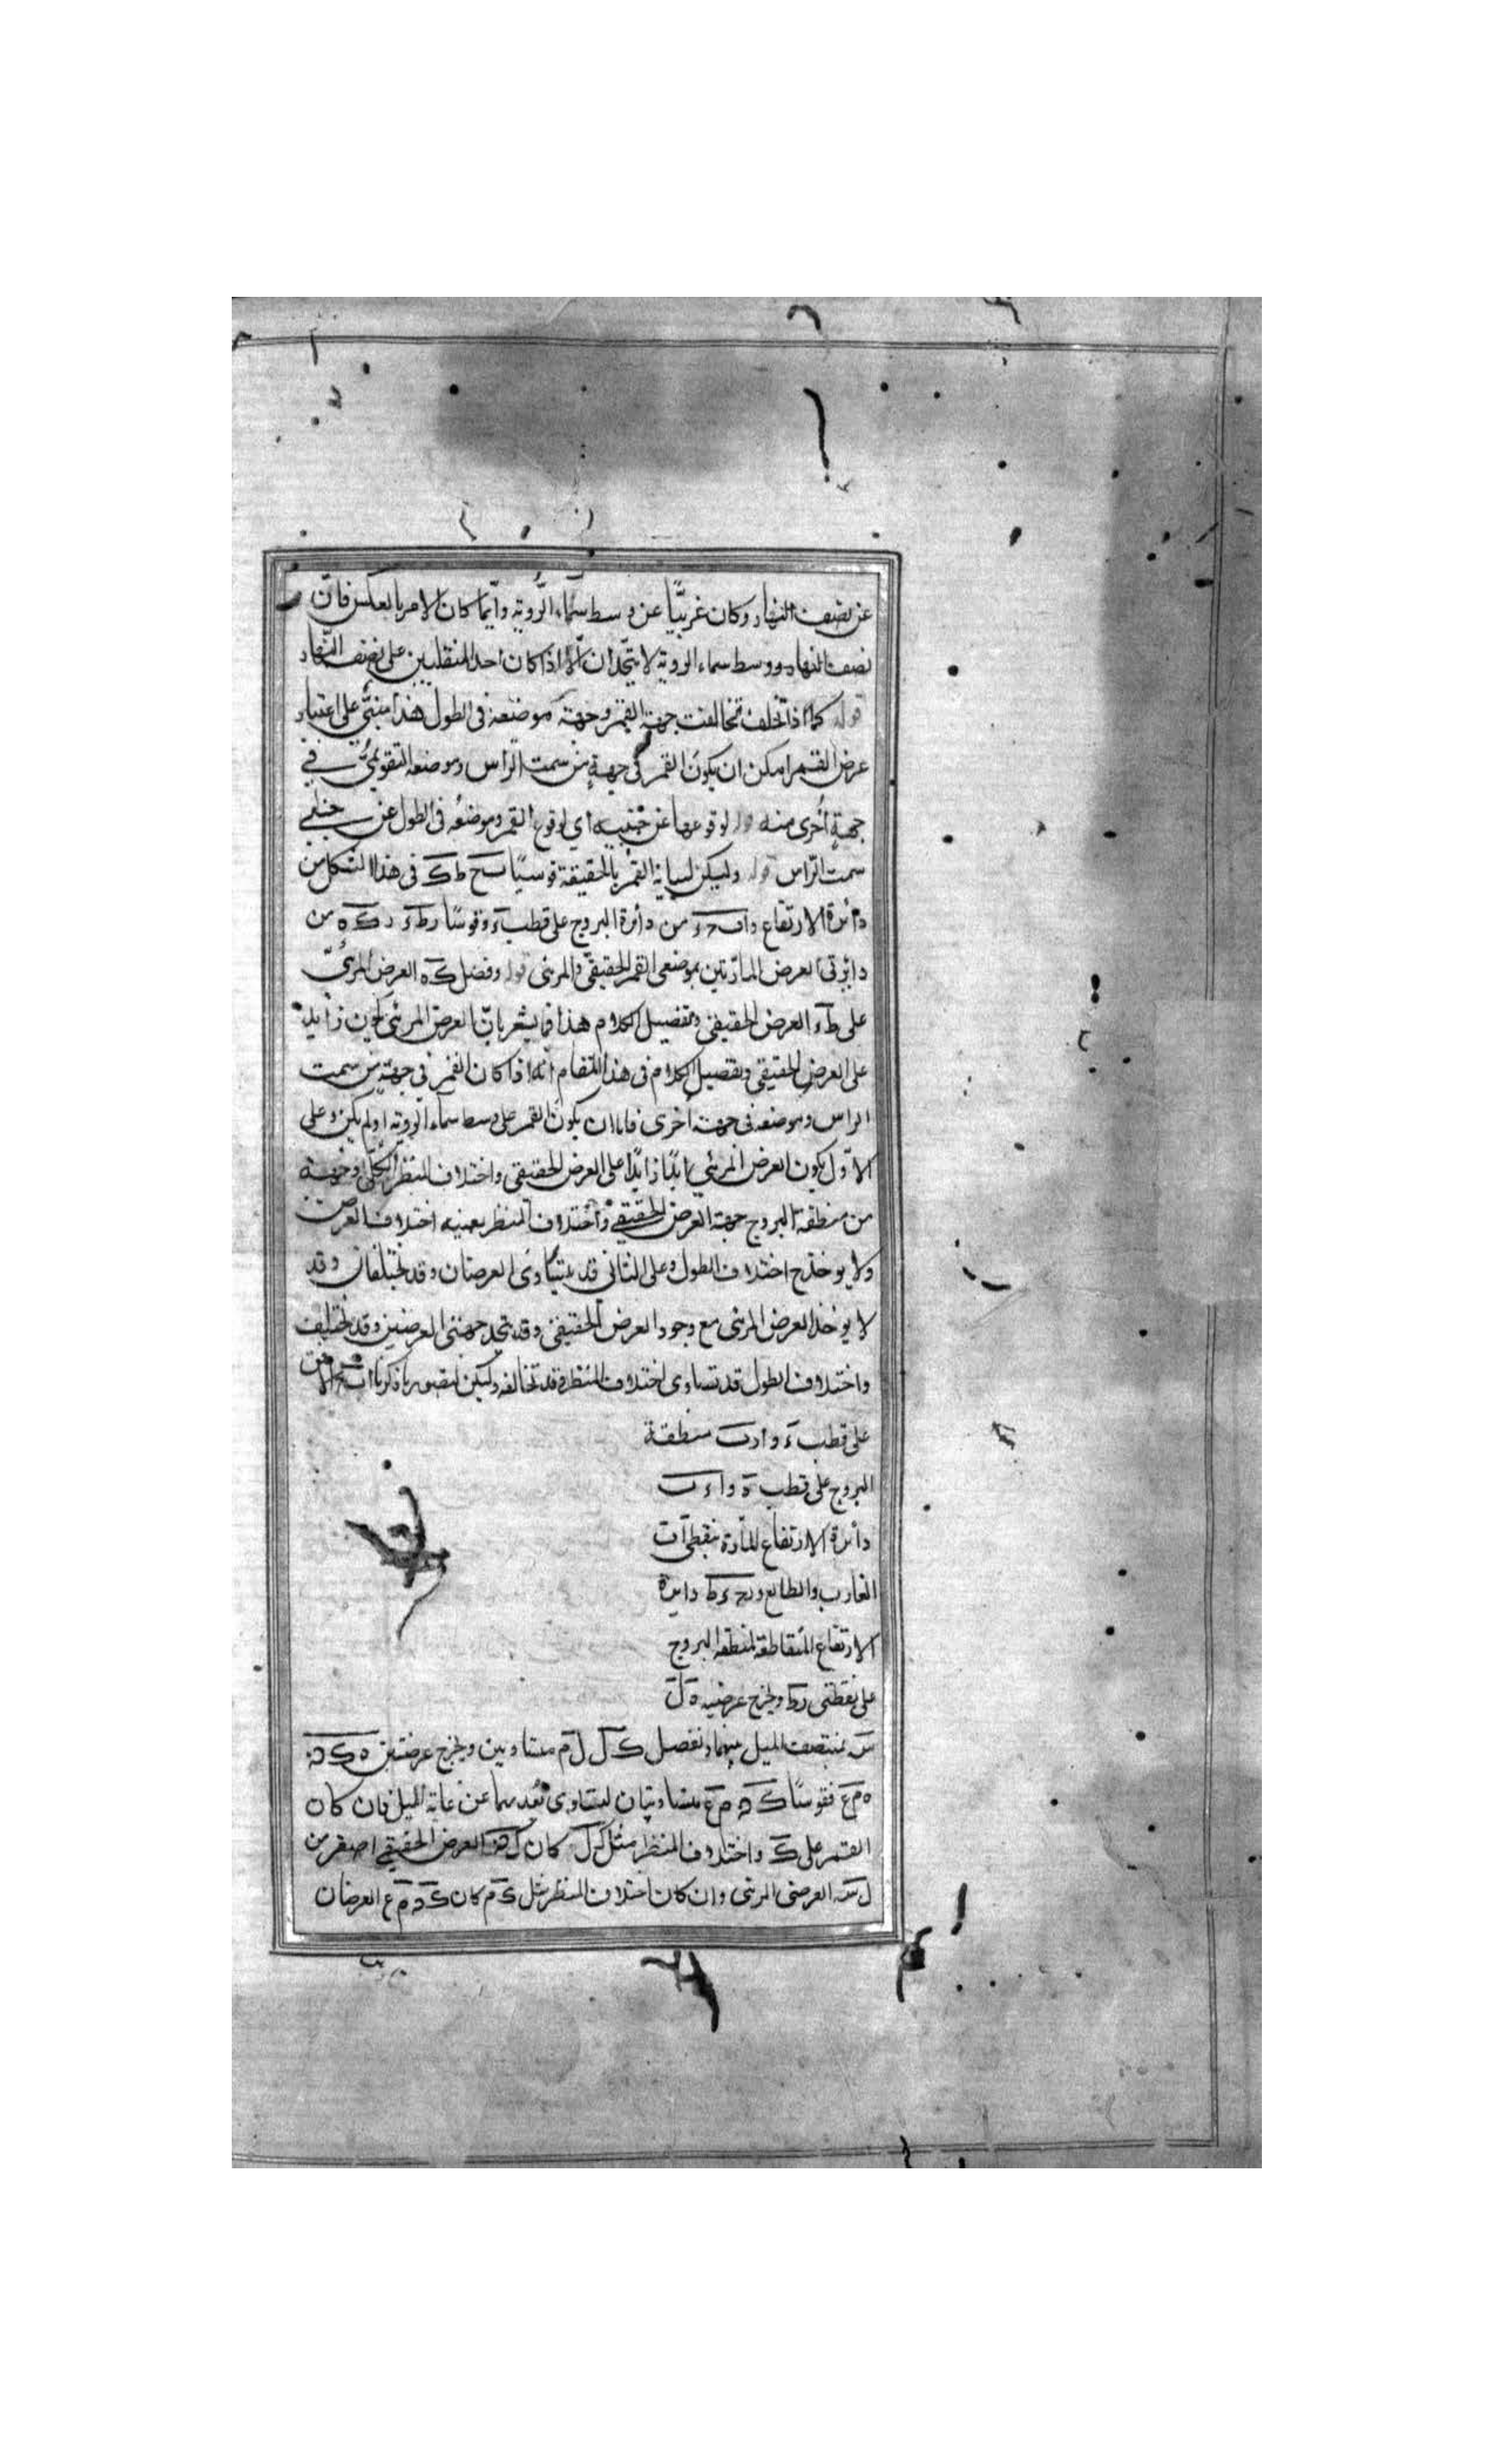 عن نصف النهار وكان غربيًّا عن وسط سماء الرُّوية وايّما كان الامر بالعكس فانّ
نصف النهار ووسط سماء الروية لا يتّحدان الّا اذا كان احد المنقلبين على نصف النّهار
قوله كما اذا تخلف تخالفت جهة القمر وجهة موضعه فى الطول هذا مبنىّ على اعتبار
عرض القمر امكن ان يكون القمر فى جهةٍ من سمت الرأس وموضعه التقويمىّ فى
جهةٍ أخرى منه قوله لوقوعها عن جنبيه اى لوقوع القمر وموضعُه فى الطول عن جنبى
سمت الرّاس قوله وليكن القمر بالحقيقة قوسيًا ح ط ك فى هذا الشكل من
دائرة الارتفاع من دائرة البروج على قطب وقوسًا ر ط ك ه من
دايرتى العرض المارّتين بموضعى القمر الحقيقىّ والمرئى قوله وفضل ك ه العرض المرئىّ
على ط العرض الحقيقى وتفصيل الكلام هذا فما يشعر بانّ العرض المرئى يكون زايد
على العرض الحقيقى وتفصيل الكلام فى هذا المقام انّه اذا كان القمر فى جهةٍ من سمت
الراس وموضعه فى جهة أخرى فاما ان يكون القمر على وسط سماء الروية او لم يكن وعلى
الاوّل يكون العرض المرئي زايدًا على العرض الحقيقى واختلاف المنظر الكلّى وجهة
من منطقة البروج جهة العرض الحقيقي واختلاف المنظر بعينه اختلاف العرض
ولا يوخذ ح اختلاف الطول وعلى الثانى قد يتساوى العرضان وقد يختلفان وقد
لا يوخذ العرض المرئى مع وجود العرض الحقيقى وقد يتحد جهتى العرضين وقد تختلف
واختلاف الطول قد تساوى اختلاف المنظر وقد تخالفه وليكن لتصور ما ذكرنا الافق
على قطب منطقة
البروج على قطب
دائرة الارتفاع المارّة بنقطتى
الغارب والطالع دايرة
الارتفاع المتقاطعة لمنطقة البروج
على نقطتى ويخرج عرضيه ه ل
س بنتصف الميل ونفصل ك ل ل م متساويين ويخرج عرضيتين
ه م ع فقوسًا م ع متساويتان لتساوى بُعديهما عن غاية الميل فان كان
القمر على ك واختلاف المنظر مثل ك ل كان العرض الحقيقي اصغر من
ل س العرض المرئى وان كان اختلاف المنظر مثل ك م كان م ع العرضان